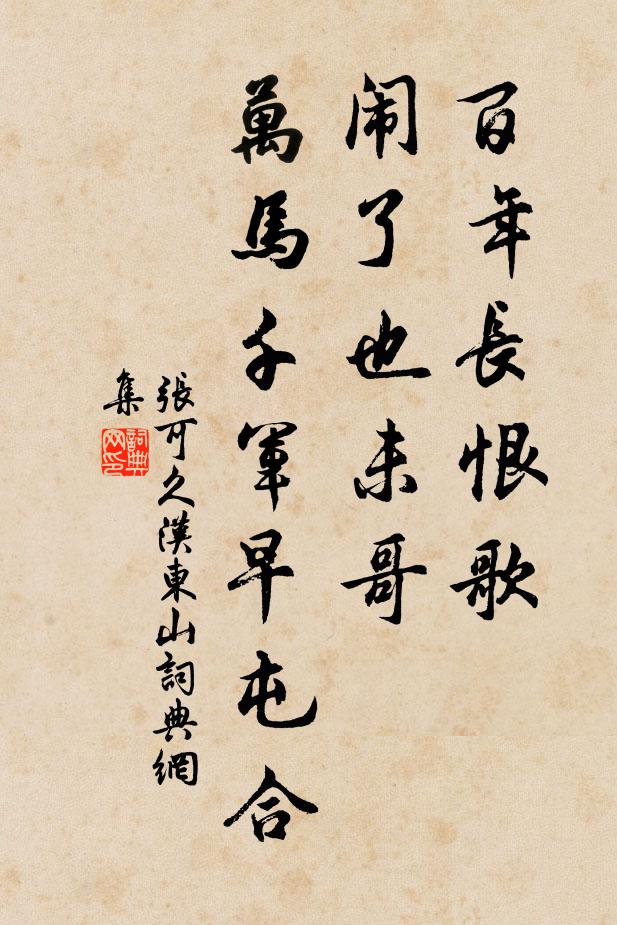 百年長恨歌
闹了也未哥
萬馬千軍早屯合
張可久漢東山詞典網
集
詞典
网印